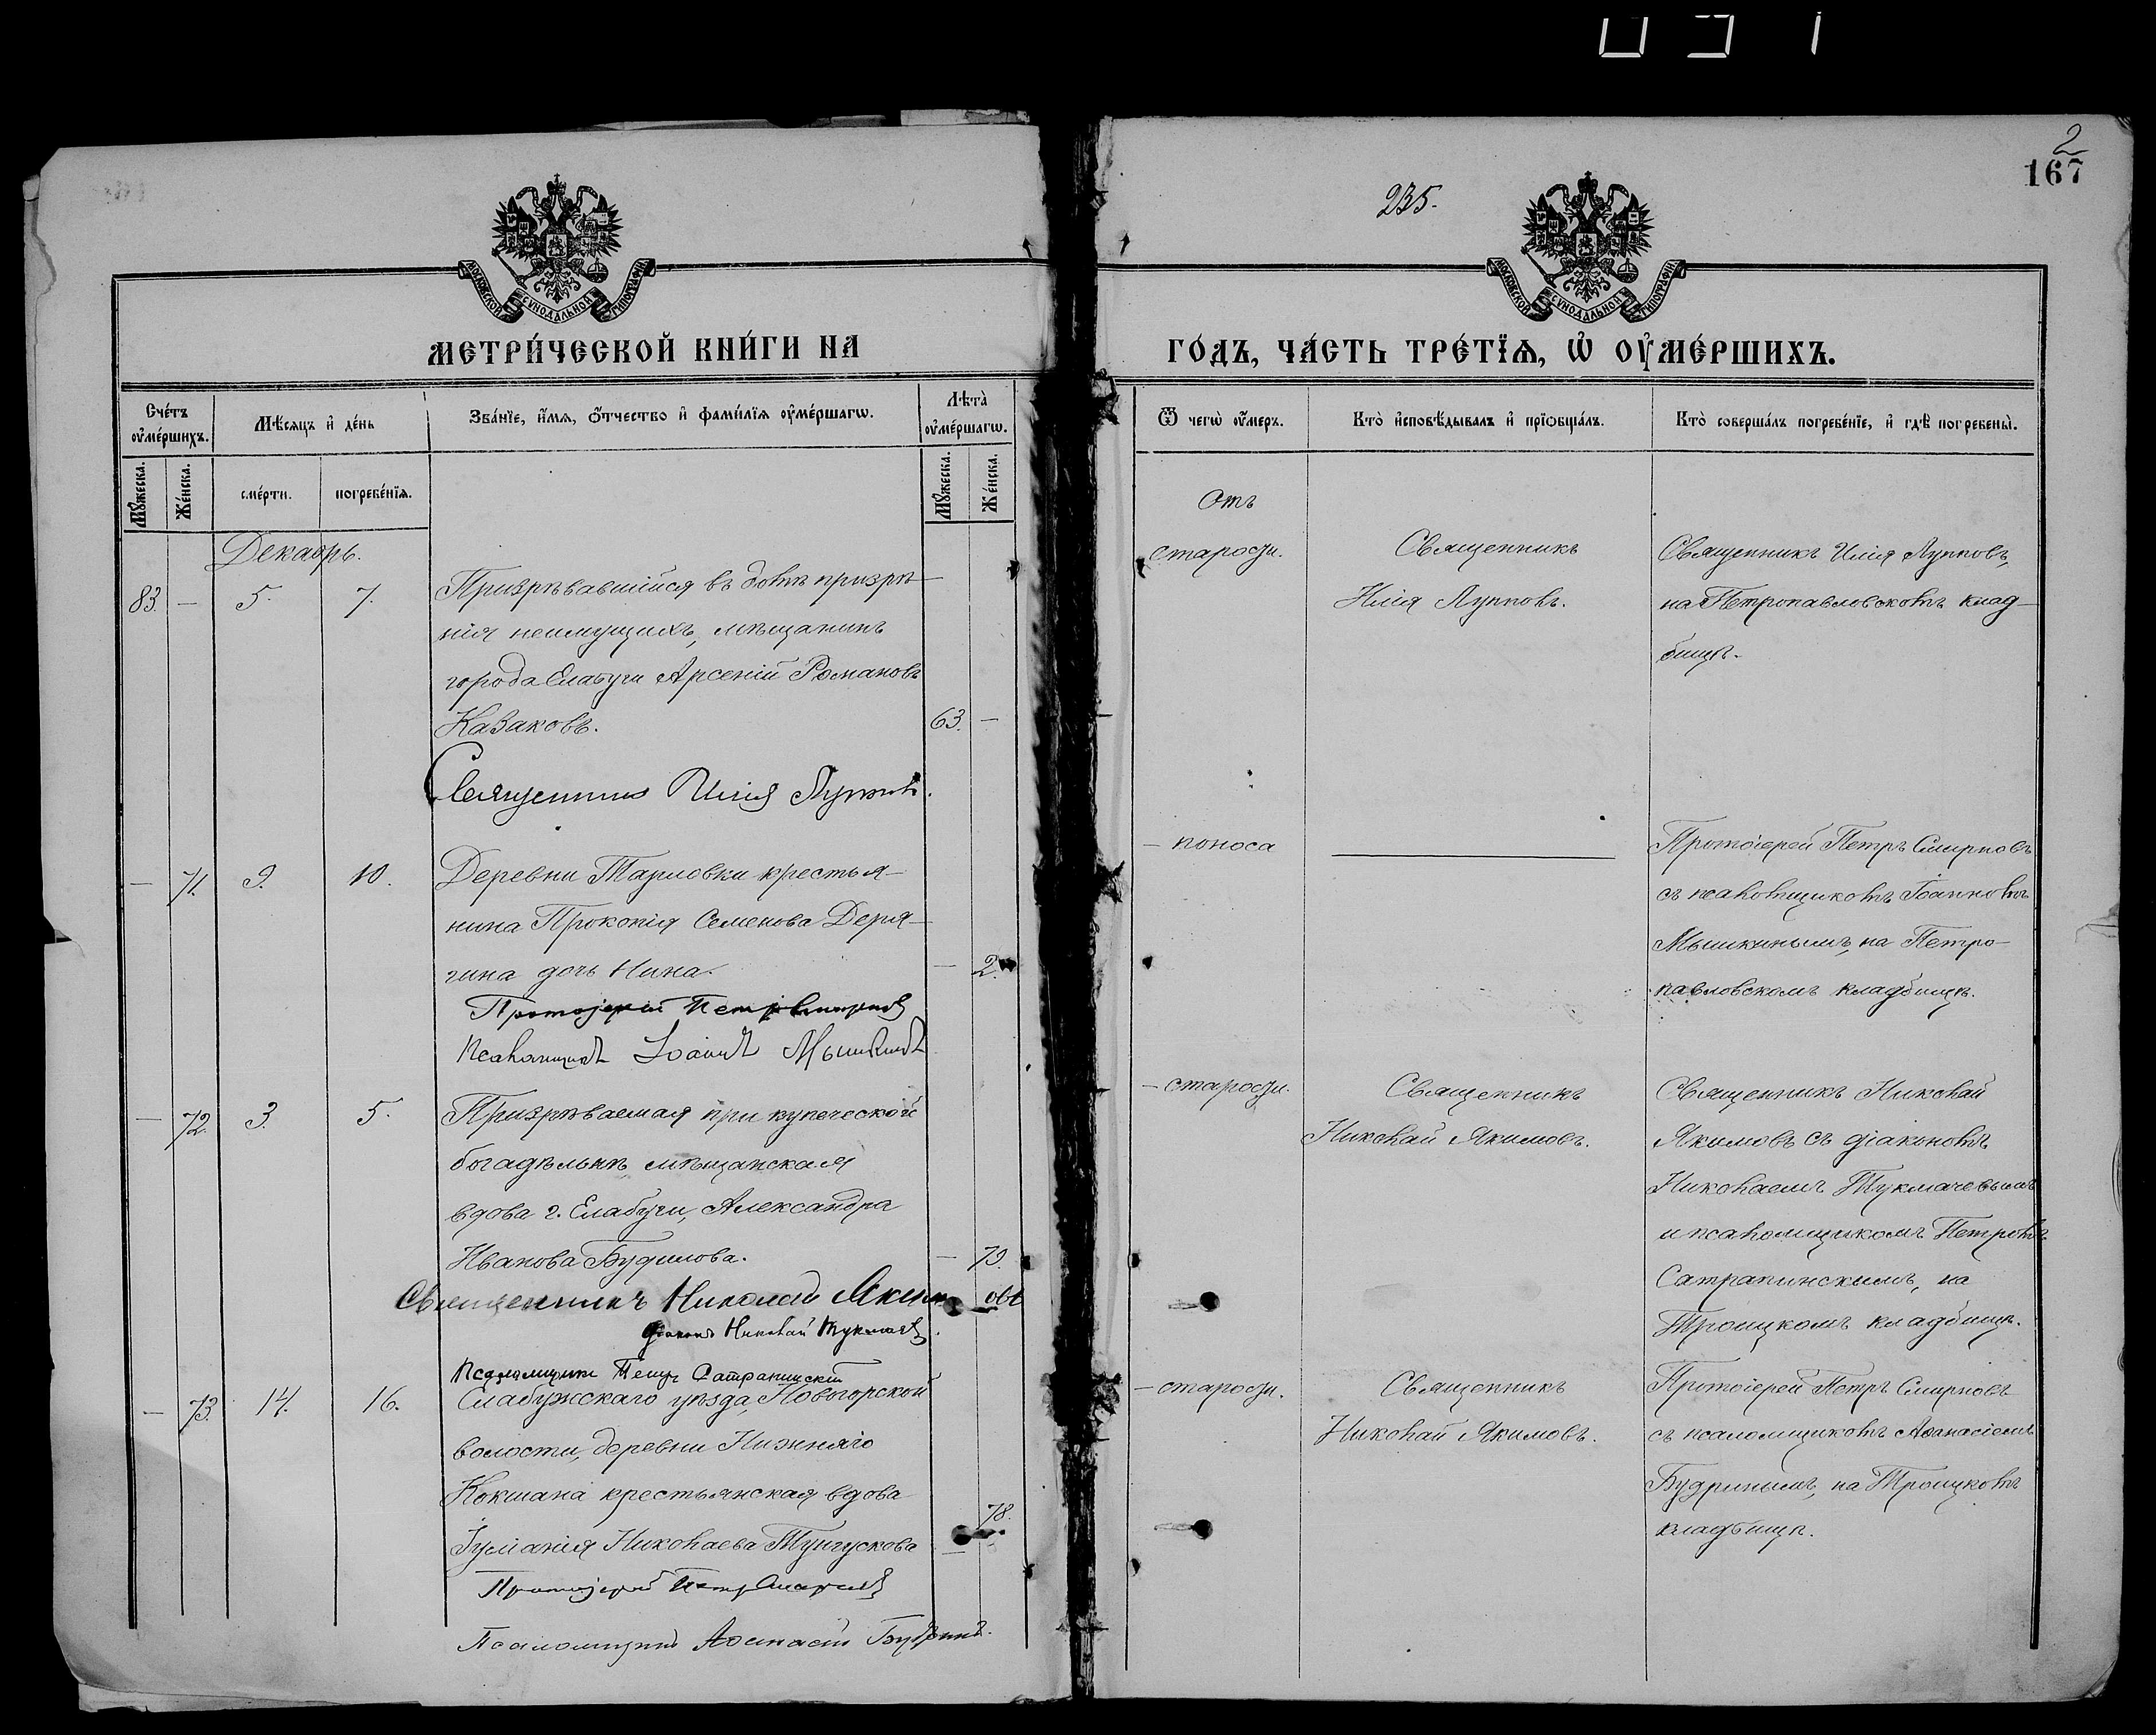 091
2
167
235.
МОСКОВСКОЙ СѴНОДАЛЬНОЙ ТИПОГРАФІИ
МОСКОВСКОЙ СѴНОДАЛЬНОЙ ТИПОГРАФІИ
МЕТРИ́ЧЕСКОЙ КНИ́ГИ НА
ГО́ДЪ, ЧА́СТЬ ТРЕ́ТІѦ, Ѽ ОУ҆МЕ́РШИХЪ.
Сче́тъ оу҆ме́ршихъ.
Мѣ́сяцъ и҆ де́нь
Зва́нїе, и҆́мя, ѻ҆́тчество и҆ фами́лїя оу҆ме́ршагѡ.
Лѣта̀ оу҆ме́ршагѡ.
Ѿ чегѡ̀ оу҆́меръ.
Кто̀ и҆сповѣ́дывалъ и҆ прїѡбща́лъ.
Кто̀ соверша́лъ погребе́нїе, и҆ гдѣ̀ погребены̀.
Мꙋ́жеска.
Же́нска.
сме́рти.
погребе́нїя.
Мꙋ́жеска.
Же́нска.
Декабрь.
83. — 5. 7.
Призрѣвавшійся въ домѣ призрѣ-
нія неимущихъ, мѣщанинъ
города Елабуги Арсеній Романовъ
Казаковъ. 63. —
Священникъ Илія Лупповъ.
Отъ
старости.
Священникъ
Илія Лупповъ.
Священникъ Илія Лупповъ,
на Петропавловскомъ клад-
бищѣ.
— 71. 9. 10.
Деревни Тарловки крестья-
нина Прокопія Семенова Деря-
гина дочь Нина. — 2.
Протоіерей Петръ Смирновъ
Псаломщикъ Іоаннъ Мышкинъ
— поноса
Протоіерей Петръ Смирновъ
съ псаломщикомъ Іоанномъ
Мышкинымъ, на Петро-
павловскомъ кладбищѣ.
— 72. 3. 5.
Призрѣваемая при купеческой
богадѣльнѣ мѣщанская
вдова г. Елабуги, Александра
Иванова Будилова. — 79.
Священникъ Николай Якимовъ
Діаконъ Николай Тукмачевъ.
Псаломщикъ Петръ Сатрапинскій
— старости.
Священникъ
Николай Якимовъ.
Священникъ Николай
Якимовъ съ діакономъ
Николаемъ Тукмачевымъ
и псаломщикомъ Петромъ
Сатрапинскимъ, на
Троицкомъ кладбищѣ.
— 73. 14. 16.
Елабужскаго уѣзда, Новогорской
волости, деревни Нижняго
Кокшана крестьянская вдова
Іуліанія Николаева Тунгускова — 78.
Протоіерей Петръ Смирновъ
Псаломщикъ Аѳанасій Будринъ.
— старости.
Священникъ
Николай Якимовъ.
Протоіерей Петръ Смирновъ
съ псаломщикомъ Аѳанасіемъ
Будринымъ, на Троицкомъ
кладбищѣ.